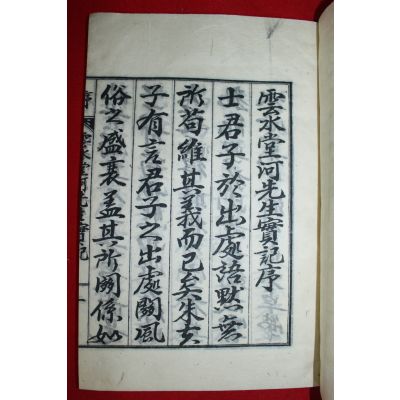 雲水堂河先生實記序
士君子於出處語黙無
所苟維其義而已矣朱夫
子有言君子之出處關風
俗之盛衰盖其所關係如